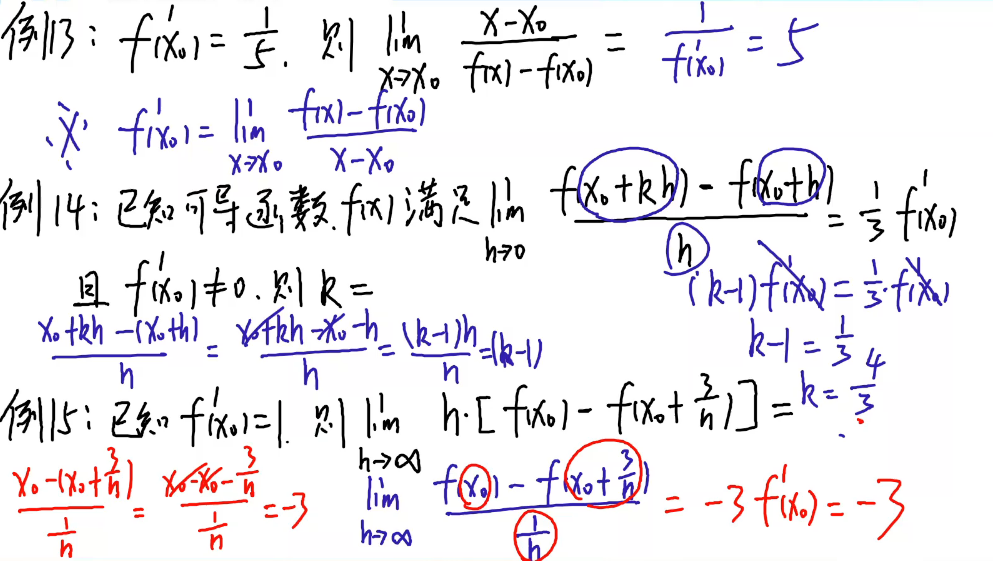 例13: f'(x₀) = 1/5. 则 lim_{x→x₀} (x-x₀)/(f(x)-f(x₀)) = 1/f'(x₀) = 5
※ f'(x₀) = lim_{x→x₀} (f(x)-f(x₀))/(x-x₀)
例14: 已知可导函数 f(x) 满足 lim_{h→0} (f(x₀+kh) - f(x₀+h))/h = 1/3 f'(x₀)
且 f'(x₀)≠0. 则 k =
(k-1)f'(x₀) = 1/3·f'(x₀)
(x₀+kh-(x₀+h))/h = (x₀+kh-x₀-h)/h = (k-1)h/h = (k-1)
k-1 = 1/3
k = 4/3
例15: 已知 f'(x₀)=1. 则 lim_{h→∞} h·[f(x₀) - f(x₀+3/h)] =
(x₀-(x₀+3/h))/(1/h) = (x₀-x₀-3/h)/(1/h) = -3
lim_{h→∞} (f(x₀) - f(x₀+3/h))/(1/h) = -3f'(x₀) = -3